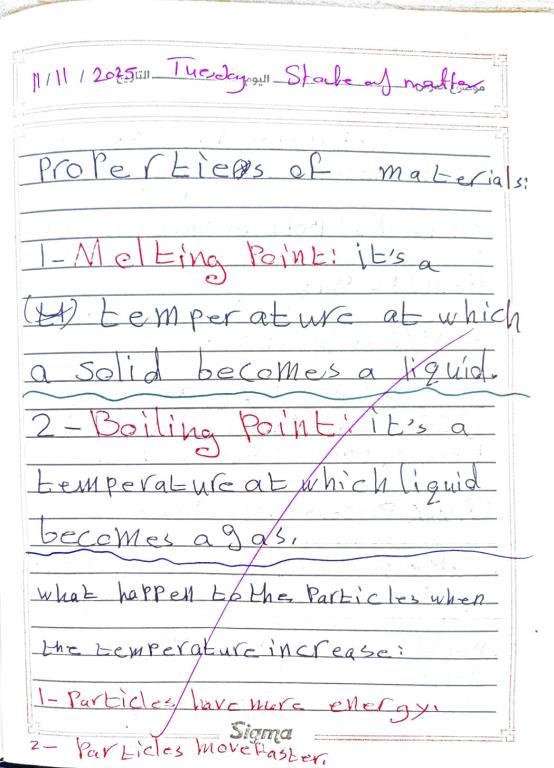 11/11/2025 التاريخ Tuesday اليوم State of matter
Properties of materials:
1-Melting Point: it's a
temperature at which
a solid becomes a liquid.
2-Boiling Point: it's a
temperature at which liquid
becomes a gas.
what happen to the Particles when
the temperature increase:
1-Particles have more energy.
Sigma
2- Particles move faster.